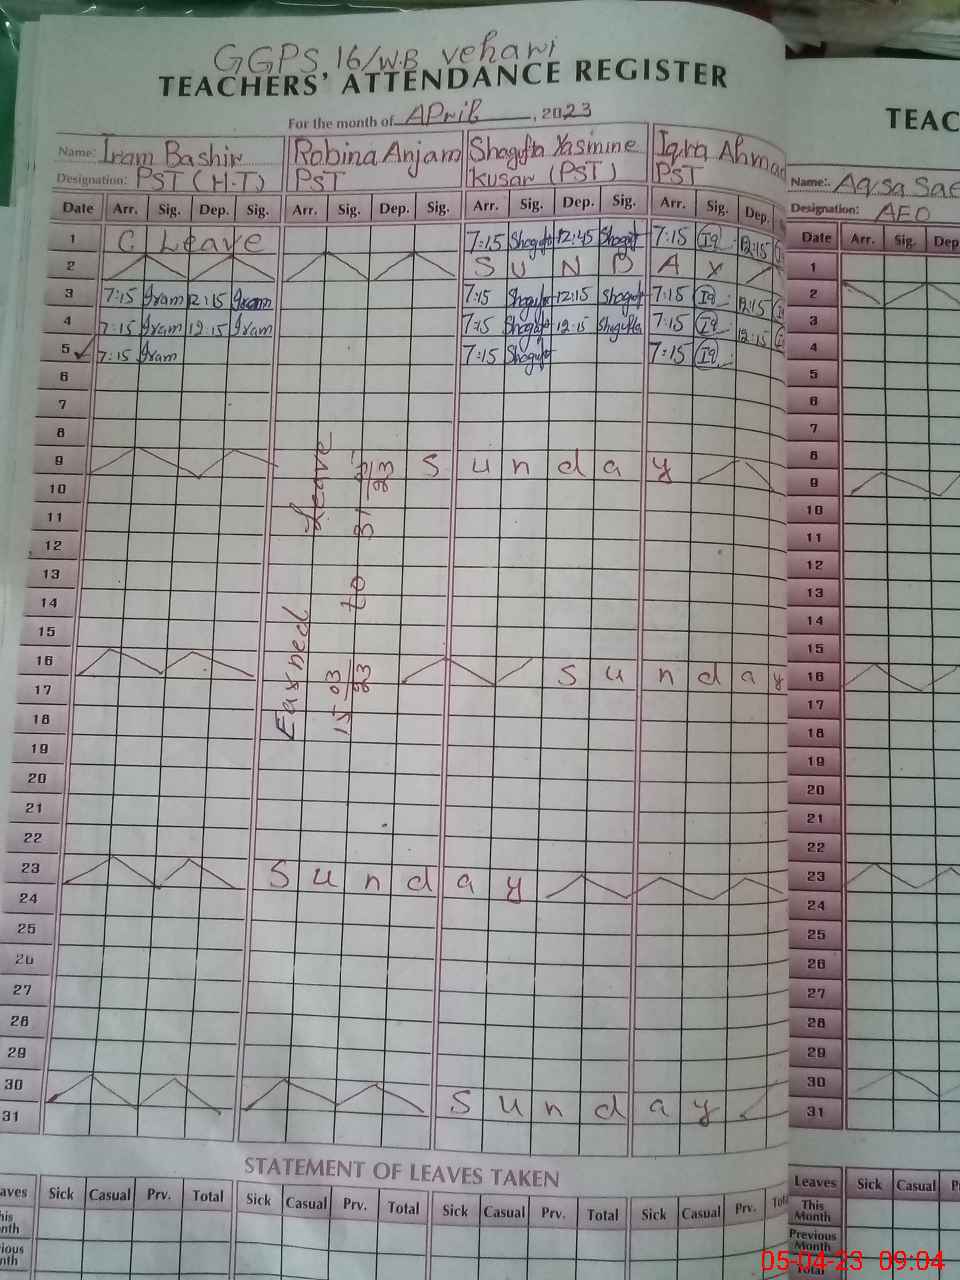 GGPS 16/W.B vehari
TEACHERS' ATTENDANCE REGISTER
For the month of April, 2023
TEAC
Name: Iram Bashir Robina Anjam Shagufta Yasmine Iqra Ahmad
Designation: PST (H.T) PST Kusar (PST) PST
Name: Aqsa Sae
Designation: AEO
Date Arr. Sig. Dep. Sig. Arr. Sig. Dep. Sig. Arr. Sig. Dep. Sig. Arr. Sig. Dep. Date Arr. Sig. Dep
1 C Leave 7:15 Shagufta 12:45 Shaguft 7:15 Iq 12:15 1
2 S U N D A Y 2
3 7:15 Iram 12:15 Iram 7:15 Shagufta 12:15 Shagufta 7:15 Iq 12:15 3
4 7:15 Iram 12:15 Iram 7:15 Shagufta 12:15 Shagufta 7:15 Iq 12:15 4
5 7:15 Iram 7:15 Shagufta 7:15 Iq 5
6 6
7 7
8 8
9 Sunday 9
10 10
11 11
12 12
13 13
14 14
15 15
16 Sunday 16
17 17
18 18
19 19
20 20
21 21
22 22
23 Sunday 23
24 24
25 25
26 26
27 27
28 28
29 29
30 Sunday 30
31 31
Earned Leave
15-03/23 to 31
STATEMENT OF LEAVES TAKEN
aves Sick Casual Prv. Total Sick Casual Prv. Total Sick Casual Prv. Total Sick Casual Prv. Leaves Sick Casual P
his nth This Month
ious nth Previous Month
Total
05-04-23 09:04